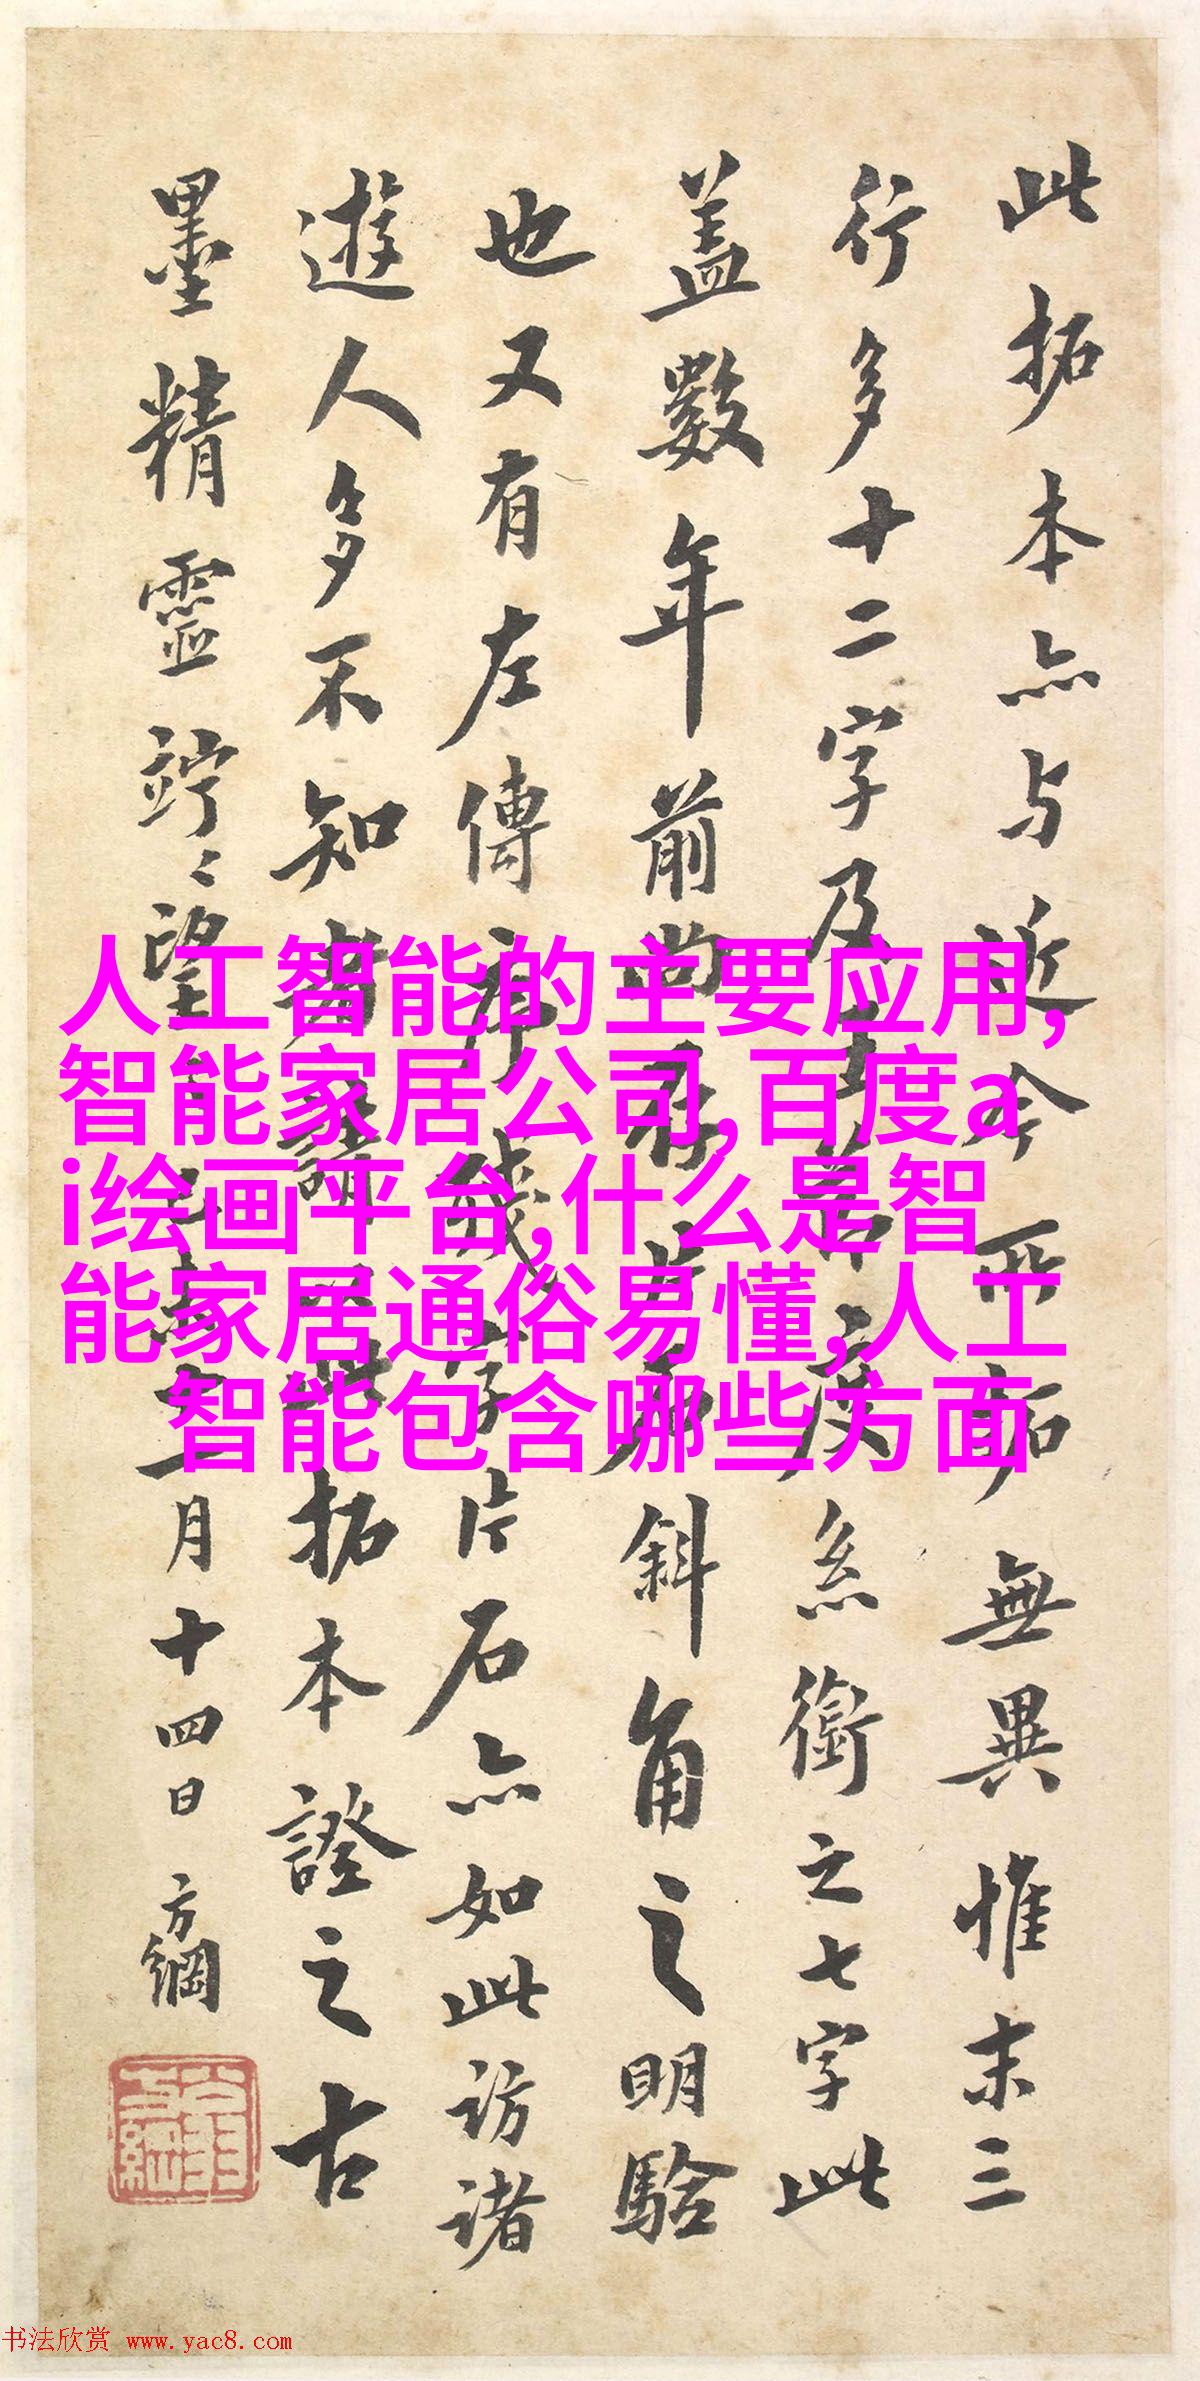 此拓本亦与近今所拓無異惟末三
行多十二字及
盖數年前
也又有左傳
遊人多不知者
墨精靈竚〻望
片石亦如此訪諸
拓本證之古
斜角之明驗
系銜之七字此
月十四日 方綱
人工智能的主要应用,
智能家居公司,百度a
i绘画平台,什么是智
能家居通俗易懂,人工
智能包含哪些方面
书法欣赏 www.yac8.com